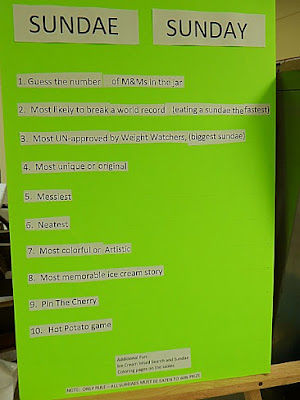 SUNDAE SUNDAY
1. Guess the number of M&Ms in the jar
2. Most likely to break a world record (eating a sundae the fastest)
3. Most UN-approved by Weight Watchers, (biggest sundae)
4. Most unique or original
5. Messiest
6. Neatest
7. Most colorful or Artistic
8. Most memorable ice cream story
9. Pin The Cherry
10. Hot Potato game
Additional Fun:
Ice Cream Word Search and Sundae
Coloring pages on the tables
NOTE: ONLY RULE – ALL SUNDAES MUST BE EATEN TO WIN PRIZE